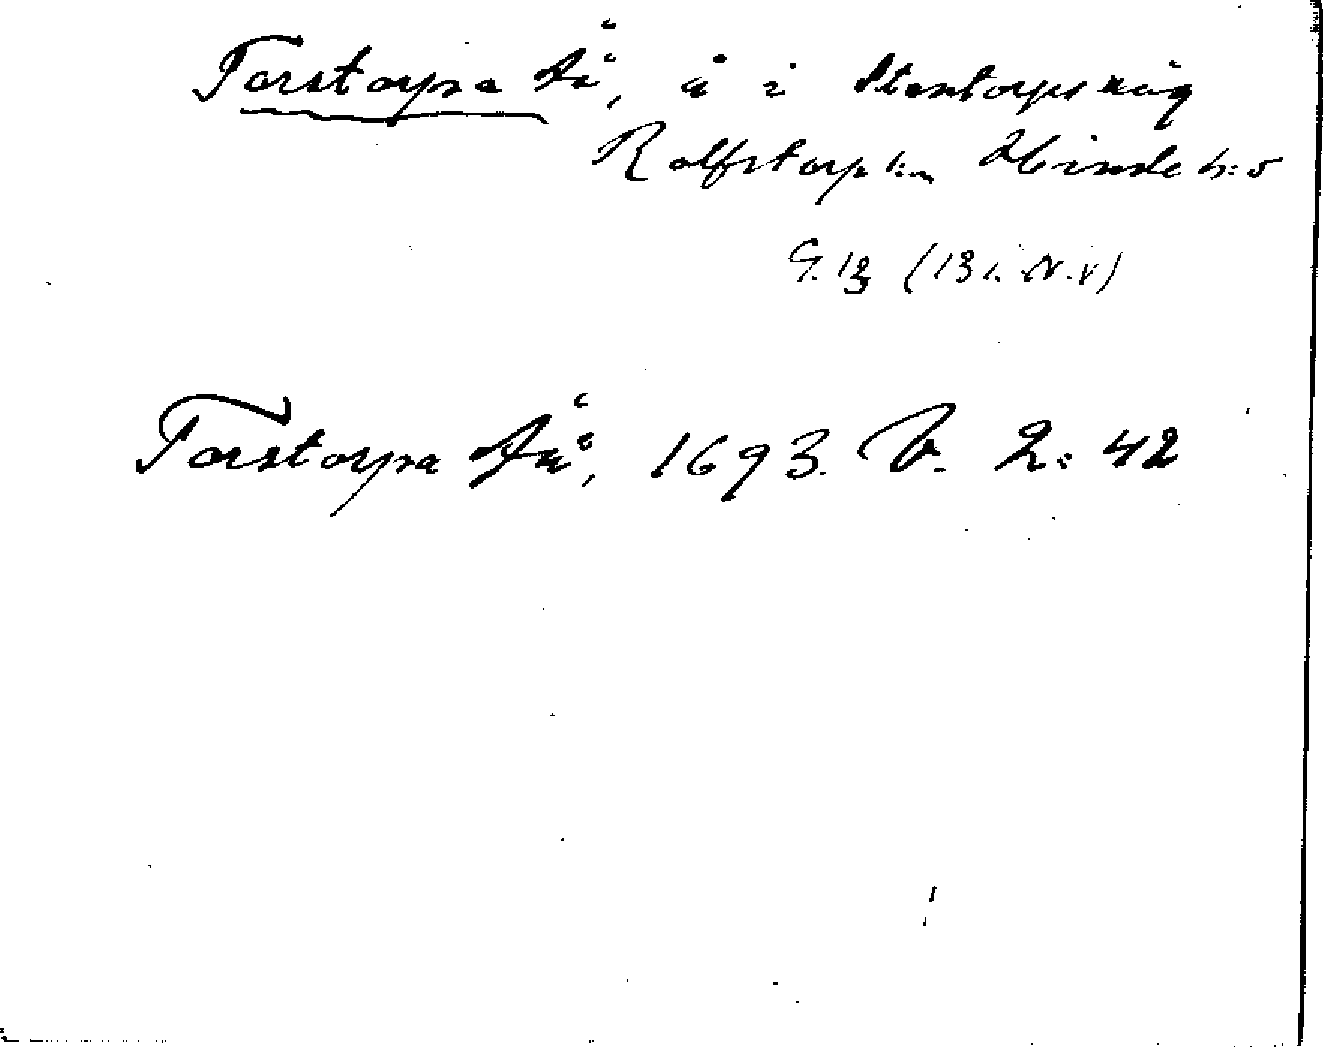 Torstorpa Åå, å i Stentorps räg
Rolfstorps sn Himle hd
G. 13 (13 i. N.V)
Torstorpa Åå, 1693. V. 2: 42